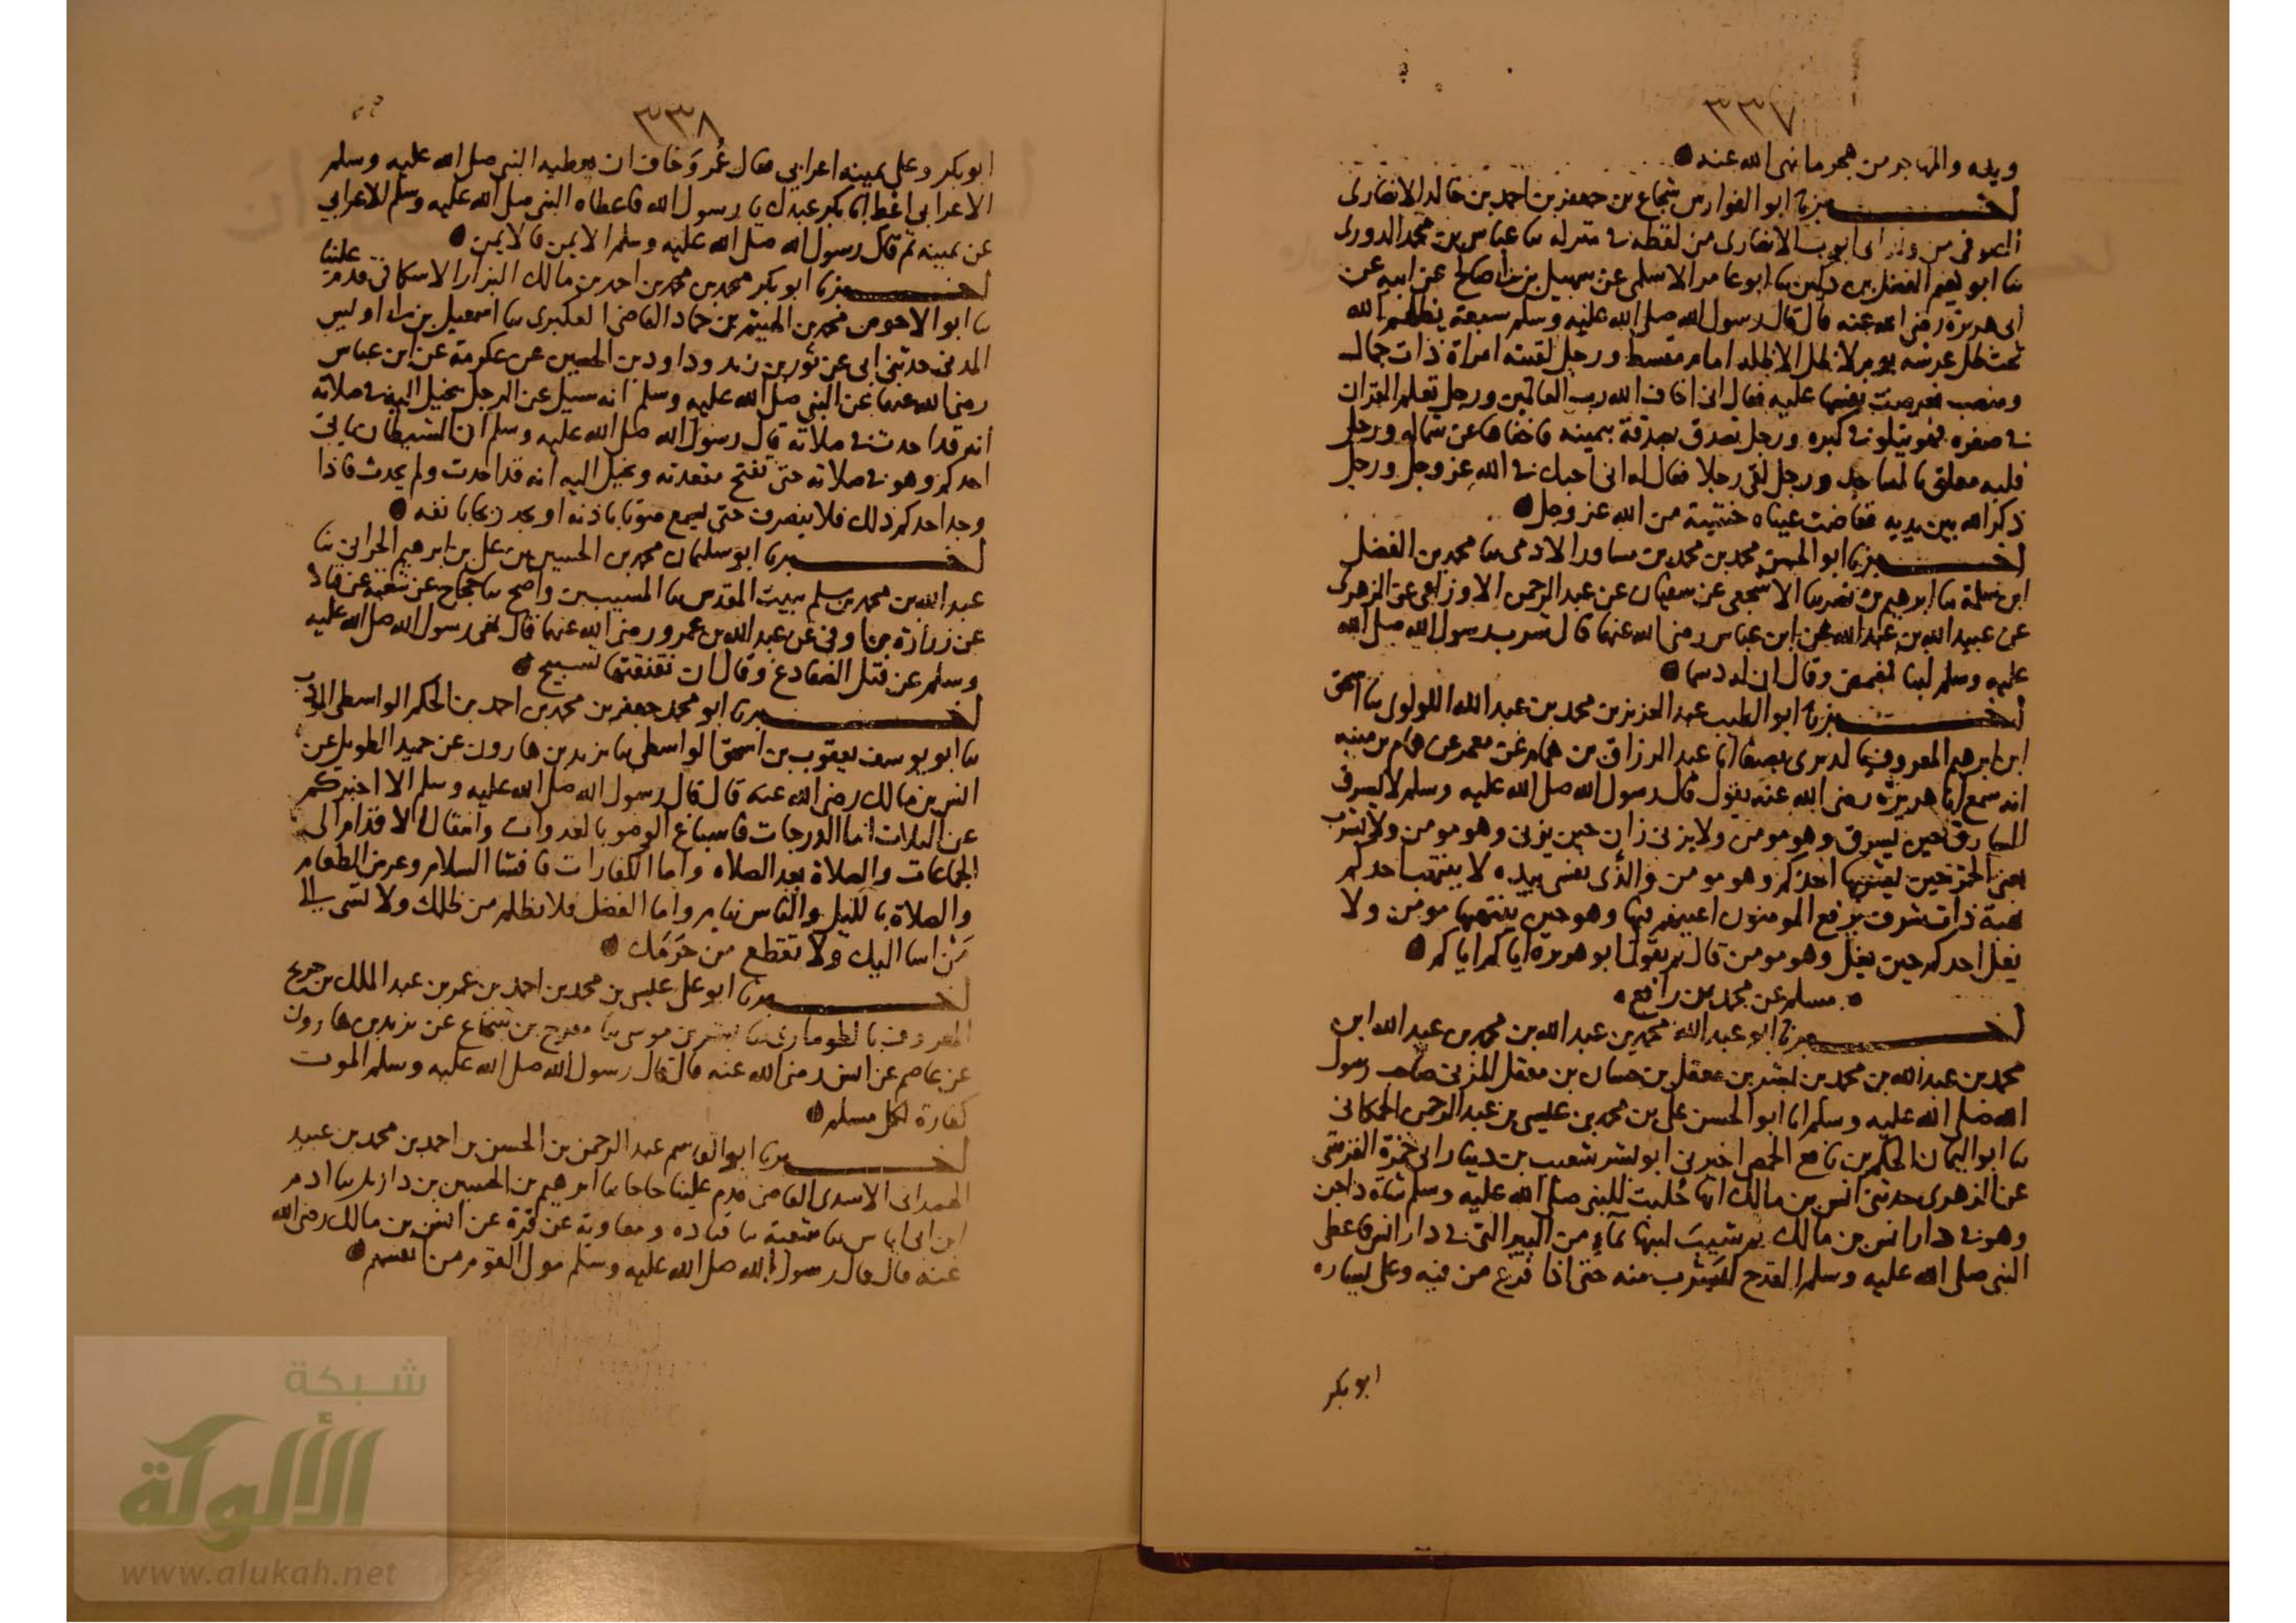 ٣٣٧
ويده والمهاجر من هجر ما نهى الله عنه
اخبرنا ابو الفوارس شجاع بن جعفر بن احمد بن خالد الانصارى
من ولد ابى ايوب الانصارى من لفظه فى منزله نا عباس بن محمد الدورى
نا ابو نعيم الفضل بن دكين نا ابو عامر الاسلمى عن سهيل بن ابى صالح عن ابيه عن
ابى هريرة رضى الله عنه قال قال رسول الله صلى الله عليه وسلم سبعة يظلهم الله
تحت ظل عرشه يوم لا ظل الا ظله امام مقسط ورجل لقيته امراة ذات جمال
ومنصب فعرضت نفسها عليه فقال انى اخاف الله رب العالمين ورجل تعلم القران
فى صغره فهو يتلوه فى كبره ورجل تصدق بصدقة بيمينه فاخفاها عن شماله ورجل
قلبه معلق بالمساجد ورجل لقى رجلا فقال له انى احبك فى الله عز وجل ورجل
ذكر الله بين يديه ففاضت عيناه خشية من الله عز وجل
اخبرنا ابو الحسن محمد بن محمد بن ساور الادمى نا محمد بن الفضل
ابن سلمة نا ابرهيم بن نصر نا الاشجعى عن سفيان عن عبد الرحمن الاوزاعى عن الزهرى
عن عبيد الله بن عبد الله عن ابن عباس رضى الله عنهما قال شرب رسول الله صلى الله
عليه وسلم لبنا فمضمض وقال ان له دسما
اخبرنا ابو الطيب عبد العزيز بن محمد بن عبد الله اللولوى نا اسحق
ابن ابرهيم المعروف بالدبرى بصنعا انا عبد الرزاق بن همام عن معمر عن همام بن منبه
انه سمع ابا هريرة رضى الله عنه يقول قال رسول الله صلى الله عليه وسلم لا يسرق
السارق حين يسرق وهو مومن ولا يزنى زان حين يزنى وهو مومن ولا يشرب
يعنى الخمر حين يشربها احدكم وهو مومن والذى نفسى بيده لا ينتهب احدكم
نهبة ذات شرف يرفع المومنون اعينهم فيها وهو حين ينتهبها مومن ولا
يغل احدكم حين يغل وهو مومن قال ثم يقول ابو هريرة اياكم اياكم
مسلم عن محمد بن رافع
اخبرنا ابو عبد الله محمد بن عبد الله بن محمد بن عبد الله ابن
محمد بن عبد الله بن محمد بن بشر بن معقل بن حسان بن معقل المزنى صاحب رسول
الله صلى الله عليه وسلم انا ابو الحسن على بن محمد بن عيسى بن عبد الرحمن الحكانى
نا ابو اليمان الحكم بن نافع الحمصى اخبرنى ابو بشر شعيب بن دينار ابى حمزة القرشى
عن الزهرى حدثنى انس بن مالك انها حُلبت للنبى صلى الله عليه وسلم شاة داجن
وهو فى دار انس بن مالك ثم شيبَ لبنها بمآءٍ من البير التى فى دار انس فاعطى
النبى صلى الله عليه وسلم القدح فشرب منه حتى اذا فرغ من فيه وعلى يساره
ابو بكر
٣٣٨
ابو بكر وعلى يمينه اعرابي فقال عُمر وَخاف ان يعطيه النبى صلى الله عليه وسلم
الاعرابي اعْط ابا بكر عندك يا رسول الله فاعطاه النبى صلى الله عليه وسلم للاعرابي
عن يمينه ثم قال رسول الله صلى الله عليه وسلم الايمن فالايمن
اخبرنا ابو بكر محمد بن محمد بن احمد بن مالك البزار الاسكافى قدم علينا
نا ابو الاحوص محمد بن الهيثم بن حماد القاضى العكبرى نا اسمعيل بن ابى اويس
المدنى حدثنى ابى عن ثور بن زيد وداود بن الحصين عن عكرمة عن ابن عباس
رضى الله عنهما عن النبى صلى الله عليه وسلم انه سيل عن الرجل يخيل اليه فى صلاته
انه قد احدث فى صلاته قال رسول الله صلى الله عليه وسلم ان الشيطان ياتى
احدكم وهو فى صلاته حتى يفتح مقعدته ويخيل اليه انه قد احدث ولم يحدث فاذا
وجد احدكم ذلك فلا ينصرف حتى يسمع صوتا باذنه او يجد ريحا بانفه
اخبرنا ابو سليمان محمد بن الحسين بن على بن ابرهيم الحرانى نا
عبد الله بن محمد بن سلم ببيت المقدس نا المسيب بن واضح نا حجاج عن شعبة عن قتادة
عن زرارة بن اوفى عن عبد الله بن عمرو رضى الله عنهما قال نهى رسول الله صلى الله عليه
وسلم عن قتل الضفادع وقال ان نقنقتها تسبيح
اخبرنا ابو محمد جعفر بن محمد بن احمد بن الحكم الواسطى المودب
نا ابو يوسف يعقوب بن اسحق الواسطى نا يزيد بن هارون عن حميد الطويل عن
انس بن مالك رضى الله عنه قال قال رسول الله صلى الله عليه وسلم الا اخبركم
عن الثلاث اما الدرجات فاسباغ الوضو بالغدوات وانتقال الاقدام الى
الجماعات والصلاة بعد الصلاة واما الكفارات فافشا السلام وعرض الطعام
والصلاة بالليل والناس نيام واما الفضل فلا تظلم من ظلمك ولا تسى الى
مَنْ اسا اليك ولا تقطع من حَرَمَك
اخبرنا ابو على عيسى بن محمد بن احمد بن عمر بن عبد الملك بن جريج
المعروف بالطومارى نا بشر بن موسى نا مفرج بن شجاع عن يزيد بن هارون
عن عاصم عن انس رضى الله عنه قال قال رسول الله صلى الله عليه وسلم الموت
كفارة لكل مسلم
اخبرنا ابو القاسم عبد الرحمن بن الحسن بن احمد بن محمد بن عبيد
الهمدانى الاسدى القاضى قدم علينا حاجا نا ابرهيم بن الحسين بن دازيل نا ادم
ابن ابى اياس نا شعبة نا قتاده ومعاوية عن قرة عن انس بن مالك رضى الله
عنه قال قال رسول الله صلى الله عليه وسلم مولى القوم من انفسهم
شبكة
الألوكة
www.alukah.net